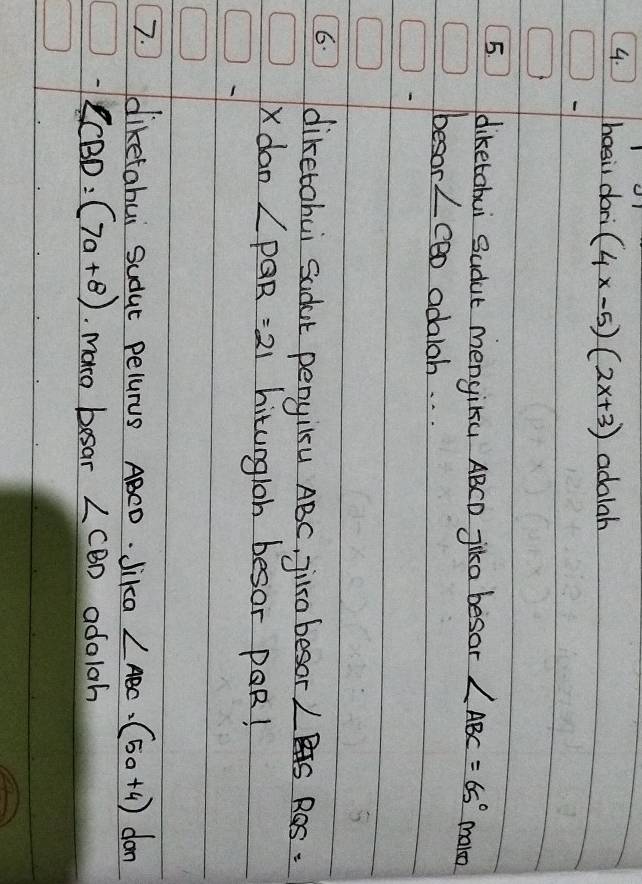 4. hasil dari (4x-5) (2x+3) adalah
-
5. diketahui sudut menyiku ABCD jika besar ∠ABC = 65° maka
besar ∠CBD adalah ...
-
6. diketahui sudut penyiku ABC, jika besar ∠ RQS =
x dan ∠PQR = 21 hitunglah besar PQR!
-
7. diketahui sudut pelurus ABCD. Jika ∠ABC = (5a+4) dan
- ∠CBD = (7a+8). maka besar ∠CBD adalah